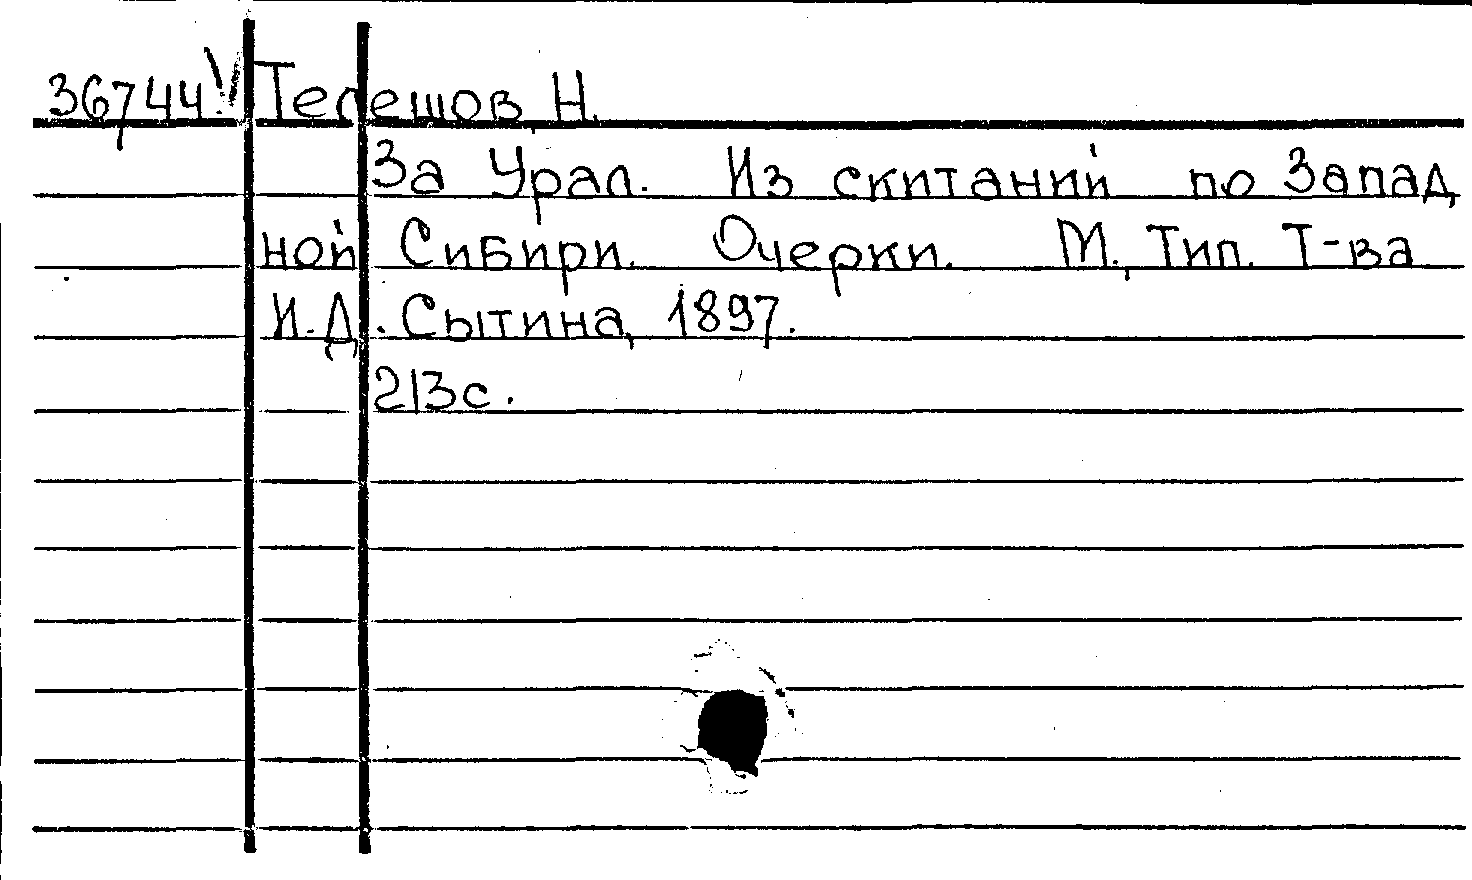 36744 Телешов Н.
За Урал. Из скитаний по Запад
ной Сибири. Очерки. М., Тип. Т-ва
И.Д. Сытина, 1897.
213с.